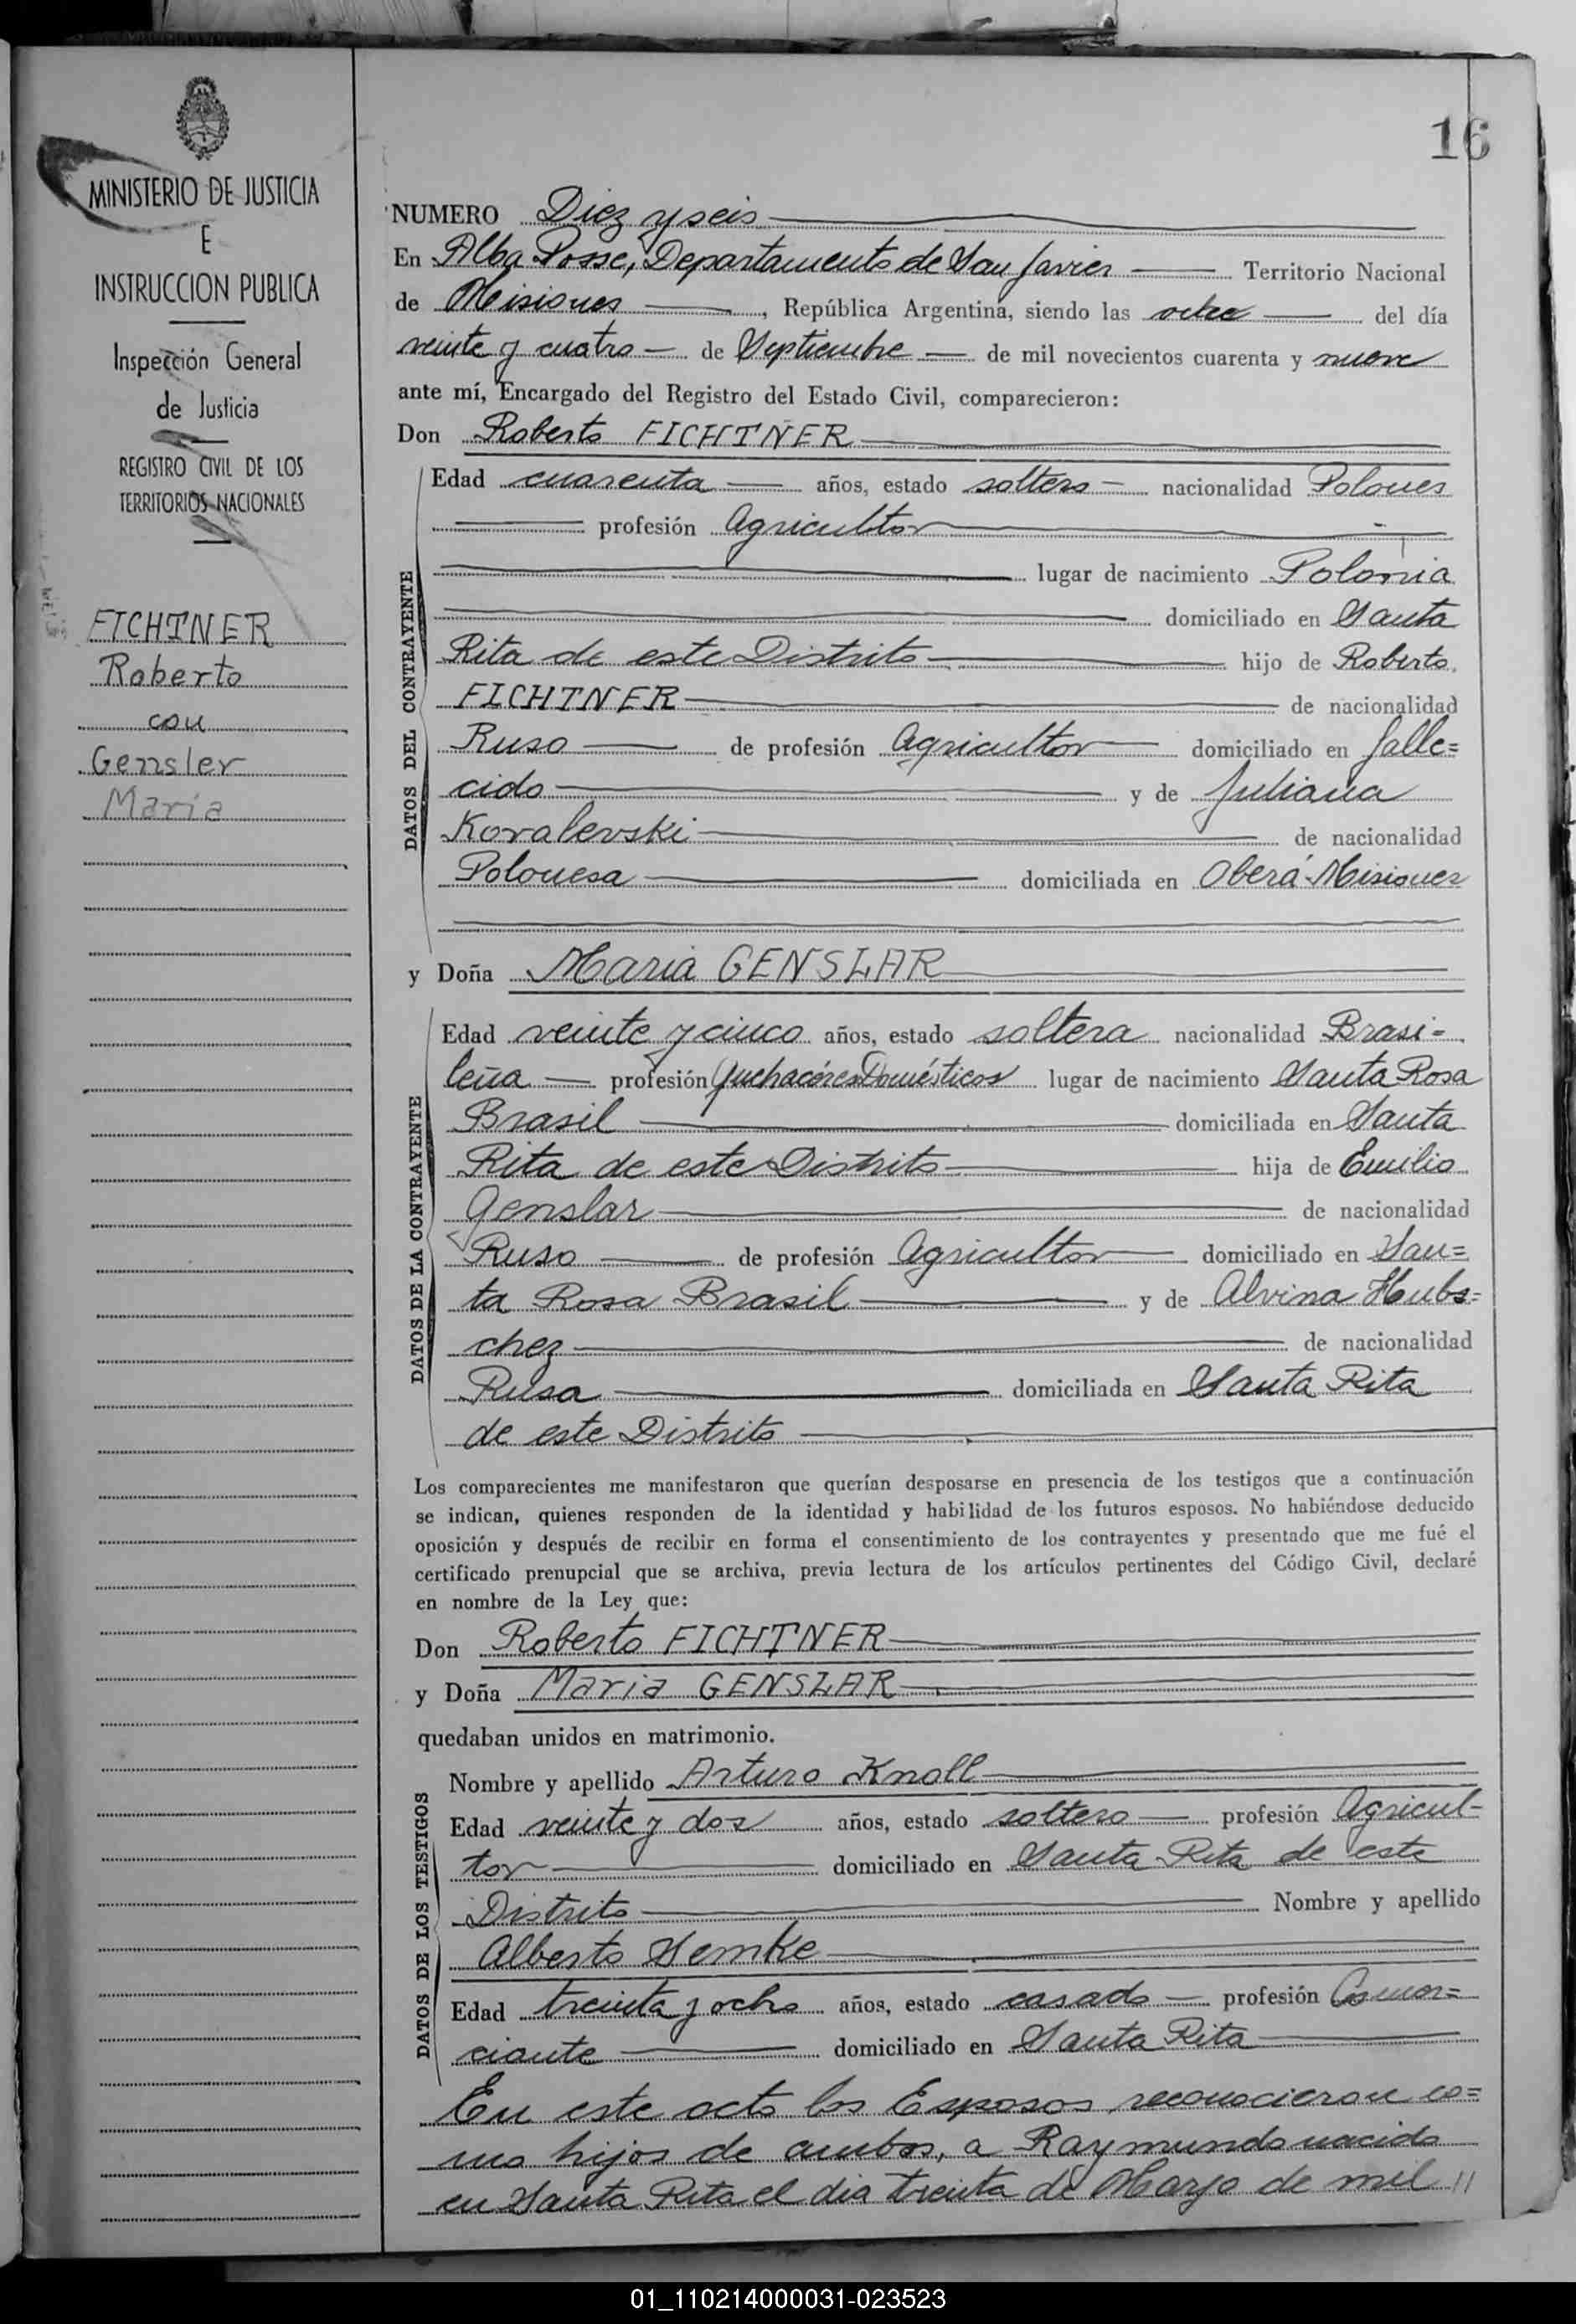 16
MINISTERIO DE JUSTICIA
E
INSTRUCCION PUBLICA
Inspección General
de Justicia
REGISTRO CIVIL DE LOS
TERRITORIOS NACIONALES
FICHTNER
Roberto
con
Gensler
Maria
NUMERO Diez y seis
En Alba Posse, Departamento de San Javier Territorio Nacional
de Misiones, República Argentina, siendo las ocho del día
veinte y cuatro de Septiembre de mil novecientos cuarenta y nueve
ante mí, Encargado del Registro del Estado Civil, comparecieron:
Don Roberto FICHTNER
DATOS DEL CONTRAYENTE
Edad cuarenta años, estado soltero nacionalidad Polones
profesión Agricultor
lugar de nacimiento Polonia
domiciliado en Santa
Rita de este Distrito hijo de Roberto
FICHTNER de nacionalidad
Ruso de profesión Agricultor domiciliado en falle=
cido y de Juliana
Kovalevski de nacionalidad
Polonesa domiciliada en Oberá-Misiones
y Doña Maria GENSLAR
DATOS DE LA CONTRAYENTE
Edad veinte y cinco años, estado soltera nacionalidad Brasi-
leña profesión Quehaceres Domésticos lugar de nacimiento Santa Rosa
Brasil domiciliada en Santa
Rita de este Distrito hija de Emilio
Genslar de nacionalidad
Ruso de profesión Agricultor domiciliado en San=
ta Rosa Brasil y de Alvina Hubs=
chez de nacionalidad
Rusa domiciliada en Santa Rita
de este Distrito
Los comparecientes me manifestaron que querían desposarse en presencia de los testigos que a continuación
se indican, quienes responden de la identidad y habilidad de los futuros esposos. No habiéndose deducido
oposición y después de recibir en forma el consentimiento de los contrayentes y presentado que me fué el
certificado prenupcial que se archiva, previa lectura de los artículos pertinentes del Código Civil, declaré
en nombre de la Ley que:
Don Roberto FICHTNER
y Doña Maria GENSLAR
quedaban unidos en matrimonio.
DATOS DE LOS TESTIGOS
Nombre y apellido Arturo Knoll
Edad veinte y dos años, estado soltero profesión Agricul-
tor domiciliado en Santa Rita de este
Distrito Nombre y apellido
Alberto Hemke
Edad treinta y ocho años, estado casado profesión Comer=
ciante domiciliado en Santa Rita
En este acto los Esposos reconocieron co=
mo hijos de ambos, a Raymundo nacido
en Santa Rita el dia treinta de Marzo de mil //
01_110214000031-023523